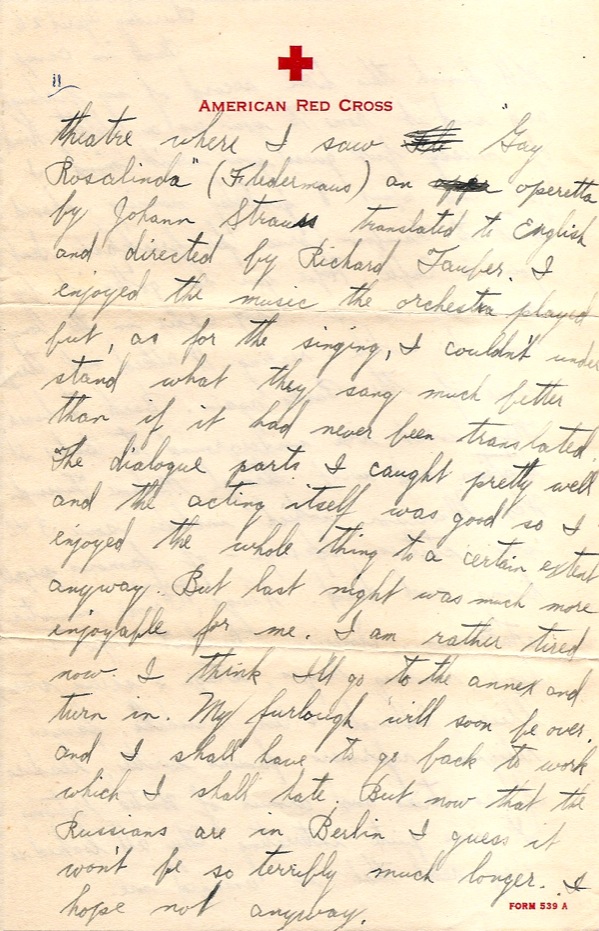 11
AMERICAN RED CROSS
theatre where I saw "Gay
Rosalinda" (Fledermaus) an operetta
by Johann Strauss translated to English
and directed by Richard Tauber. I
enjoyed the music the orchestra played
but, as for the singing, I couldn't under
stand what they sang much better
than if it had never been translated.
The dialogue parts I caught pretty well
and the acting itself was good so I
enjoyed the whole thing to a certain extent
anyway. But last night was much more
enjoyable for me. I am rather tired
now. I think I'll go to the annex and
turn in. My furlough will soon be over.
and I shall have to go back to work
which I shall hate. But now that the
Russians are in Berlin I guess it
won't be so terribly much longer. I
hope not anyway.
FORM 539 A